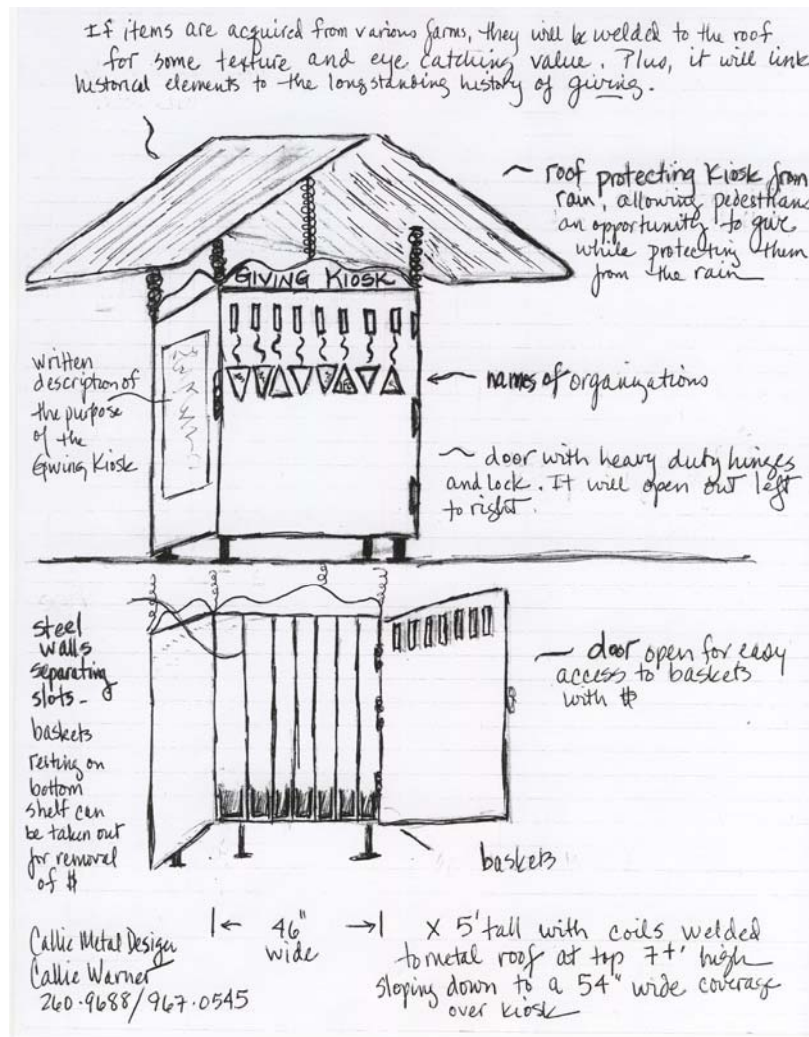 If items are acquired from various farms, they will be welded to the roof
for some texture and eye catching value. Plus, it will link
historical elements to the longstanding history of giving.
roof protecting Kiosk from
rain, allowing pedestrians
an opportunity to give
while protecting them
from the rain
GIVING KIOSK
written
description of
the purpose
of the
Giving Kiosk
names of organizations
door with heavy duty hinges
and lock. It will open out left
to right.
steel
walls
separating
slots -
baskets
resting on
bottom
shelf can
be taken out
for removal
of $
door open for easy
access to baskets
with $
baskets
46"
wide
X 5' tall with coils welded
to metal roof at top 7+' high
sloping down to a 54" wide coverage
over kiosk
Callie Metal Design
Callie Warner
260.9688/967.0545